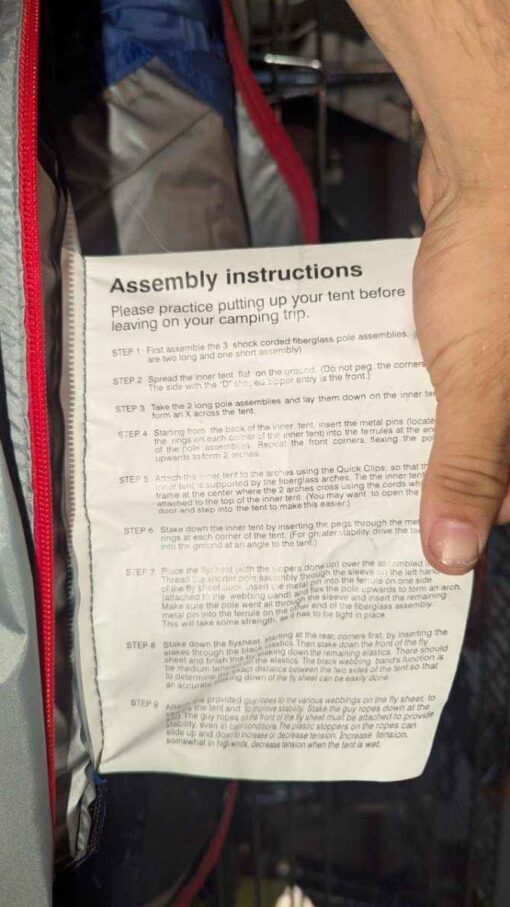 Assembly instructions
Please practice putting up your tent before
leaving on your camping trip.
STEP 1 First assemble the 3 shock corded fiberglass pole assemblies.
are two long and one short assembly)
STEP 2 Spread the inner tent flat on the ground. (Do not peg the corners
The side with the "D" entry is the front.)
STEP 3 Take the 2 long pole assemblies and lay them down on the inner
form an X across the tent.
STEP 4 Starting from the back of the inner tent, insert the metal pins (locate
the rings on each corner of the inner tent) into the ferrules at the
of the pole assemblies. Repeat the front corners, flexing the
upwards to form 2 arches.
STEP 5 Attach the inner tent to the arches using the Quick Clips, so that
inner tent is supported by the fiberglass arches. Tie the inner
frame at the center where the 2 arches cross using the cords
attached to the top of the inner tent. (You may want to open the
door and step into the tent to make this easier.)
STEP 6 Stake down the inner tent by inserting the pegs through the
rings at each corner of the tent. (For greater stability drive the
into the ground at an angle to the tent.)
STEP 7 Place the flysheet (with the zippers done up) over the assembled
Thread the shorter pole assembly through the sleeve on the left hand
of the fly sheet insert the metal pin into the ferrule on one side
(attached to the webbing band) and flex the pole upwards to form an arch.
Make sure the pole went all through the sleeve and insert the remaining
metal pin into the ferrule on the other end of the fiberglass assembly.
This will take some strength, as it has to be tight in place.
STEP 8 Stake down the flysheet, starting at the rear, corners first, by inserting the
stakes through the black elastics. Then stake down the front of the fly
sheet and finish this by staking down the remaining elastics. There should
be medium tension on the elastics. The black webbing band's function is
to determine the exact distance between the two sides of the tent so that
an accurate staking down of the fly sheet can be easily done.
STEP 9 Attach the provided guy ropes to the various webbings on the fly sheet, to
the tent and to improve stability. Stake the guy ropes down at the
The guy ropes on the front of the fly sheet must be attached to provide
stability, even in calm conditions. The plastic stoppers on the ropes can
slide up and down to increase or decrease tension. Increase tension,
somewhat in high winds, decrease tension when the tent is wet.